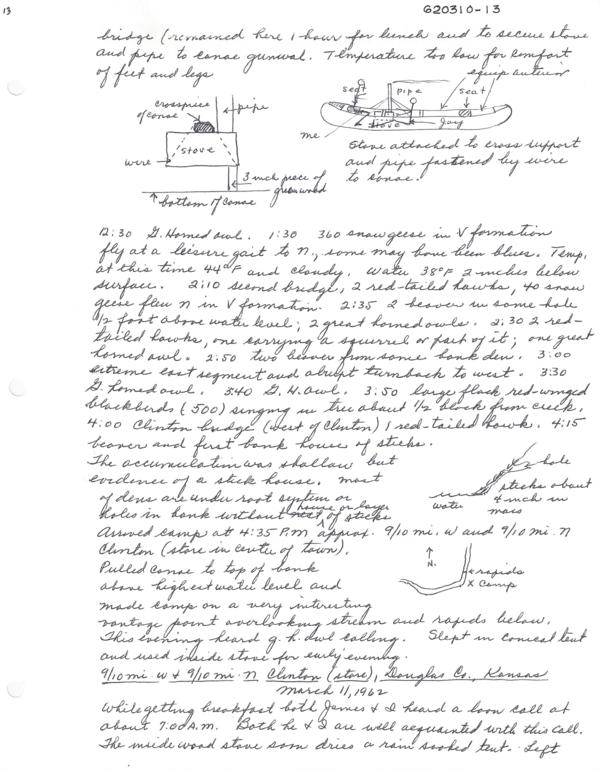 13
620310-13
bridge (remained here 1 hour for lunch and to secure stove
and pipe to canoe gunwal. Temperature too low for comfort
of feet and legs
crosspiece
of canoe
pipe
stove
wire
3 inch piece of
green wood
bottom of canoe
seat
pipe
equip
seat
me
stove
Jay
Stove attached to cross support
and pipe fastened by wire
to canoe.
12:30 G. Horned owl. 1:30 360 snow geese in V formation
fly at a leisure gait to n., some may have been blues. Temp.
at this time 44°F and cloudy. Water 38°F 2 inches below
surface. 2:10 second bridge, 2 red-tailed hawks, 40 snow
geese flew n in V formation. 2:35 2 beaver in some hole
1/2 foot above water level; 2 great horned owls. 2:30 2 red-
tailed hawks, one carrying a squirrel or part of it; one great
horned owl. 2:50 two beaver from some bank den. 3:00
extreme east segment and abrupt turnback to west. 3:30
G. horned owl. 3:40 G. H. owl. 3:50 large flock red-winged
blackbirds (500) singing in tree about 1/2 block from creek.
4:00 Clinton bridge (west of Clinton) 1 red-tailed hawk. 4:15
beaver and first bank house of sticks.
The accumulation was shallow but
evidence of a stick house. most
of dens are under root system or
holes in bank without nest house or layer of sticks
hole
sticks about
4 inch in
mass
water
Arrived camp at 4:35 P.M approx. 9/10 mi. w and 9/10 mi. n
Clinton (store in center of town).
Pulled canoe to top of bank
above highest water level and
made camp on a very interesting
N.
rapids
x Camp
vantage point overlooking stream and rapids below.
This evening heard g. h. owl calling. Slept in conical tent
and used inside stove for early evening.
9/10 mi. w & 9/10 mi. n Clinton (store), Douglas Co., Kansas
March 11, 1962
While getting breakfast both James & I heard a loon call at
about 7:00 A.M. Both he & I are well acquainted with this call.
The inside wood stove soon dries a rain soaked tent. Left